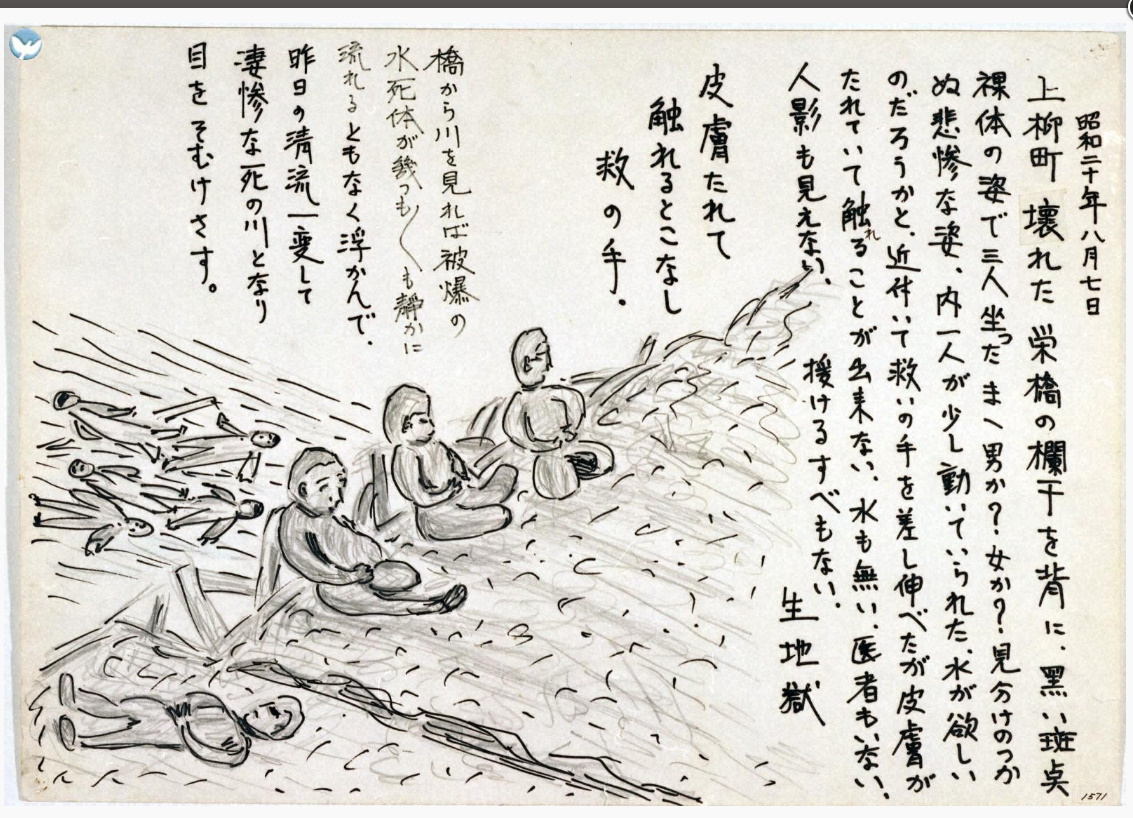 昭和二十年八月七日
上柳町 壊れた 栄橋の欄干を背に、黒い斑点
裸体の姿で三人坐ったまゝ男か?女か?見分けのつか
ぬ悲惨な姿、内一人が少し動いていられた、水が欲しい
のだろうかと、近付いて救いの手を差し伸べたが皮膚が
たれていて触れることが出来ない、水も無い、医者もいない、
人影も見えない、援けるすべもない、
生地獄
皮膚たれて
触れるとこなし
救の手。
橋から川を見れば被爆の
水死体が幾つも〱も静かに
流れるともなく浮かんで、
昨日の清流一変して
凄惨な死の川となり
目をそむけさす。
1571